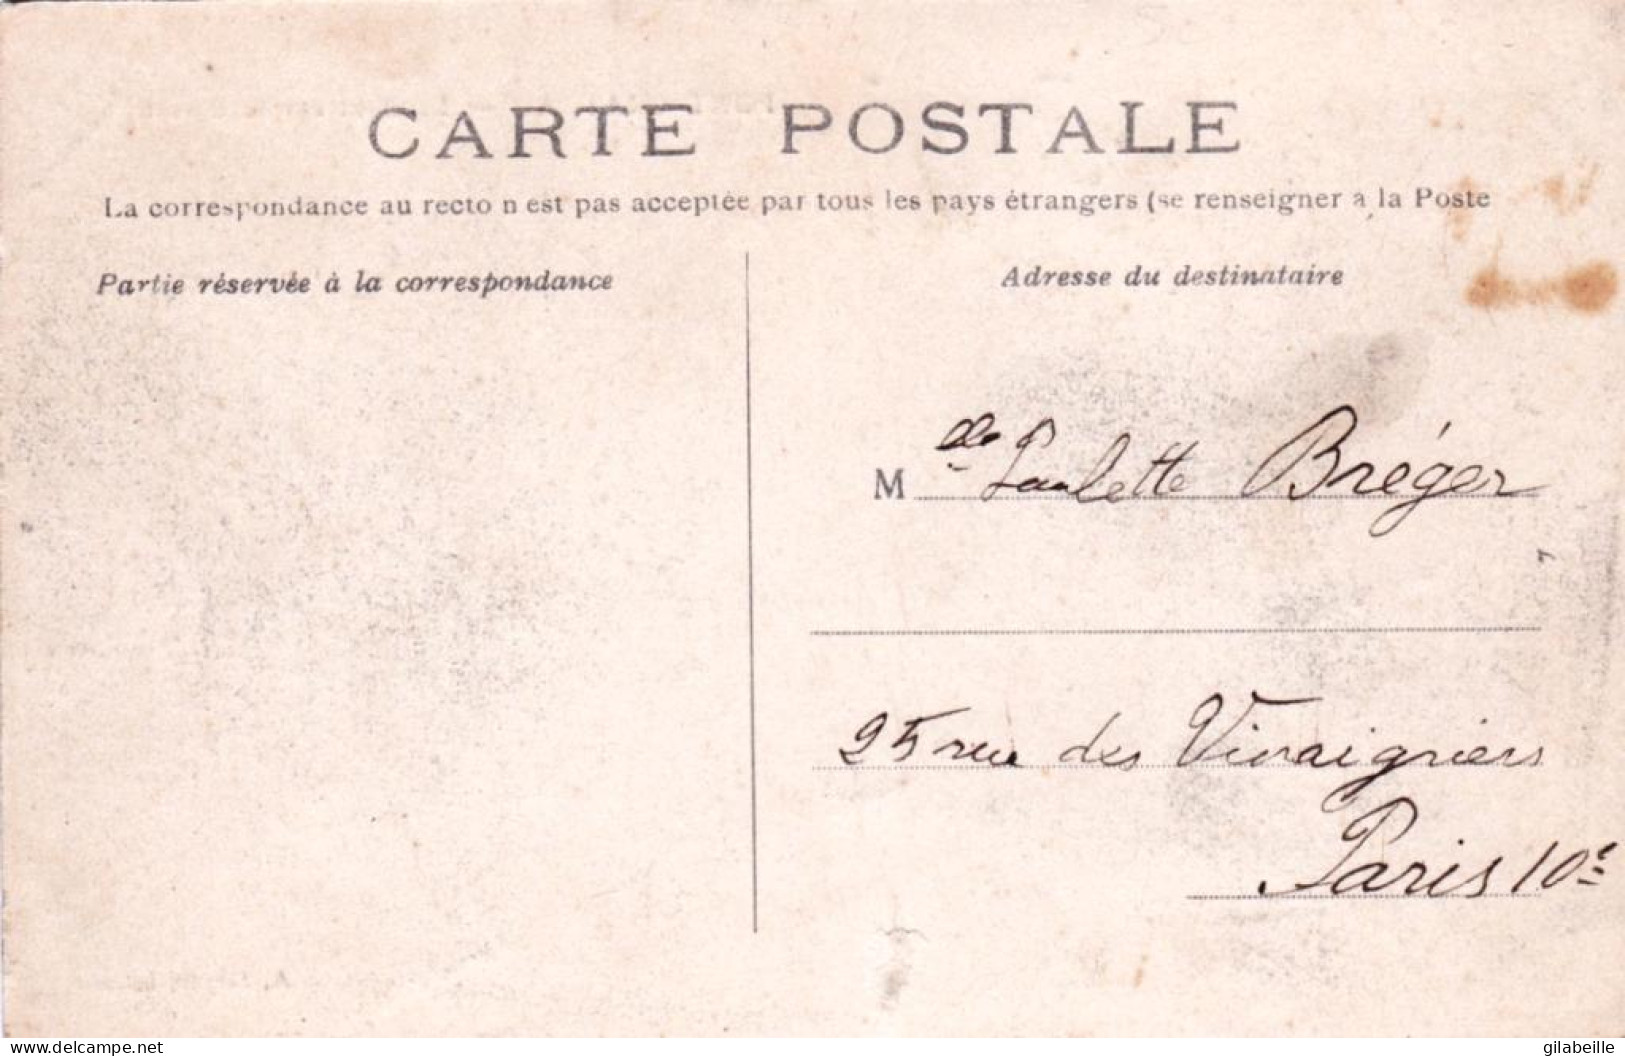 CARTE POSTALE
La correspondance au recto n est pas acceptée par tous les pays étrangers (se renseigner a la Poste
Partie réservée à la correspondance
Adresse du destinataire
Mlle Paulette Bréger
25 rue des Vinaigriers
Paris 10e
www.delcampe.net
gilabeille